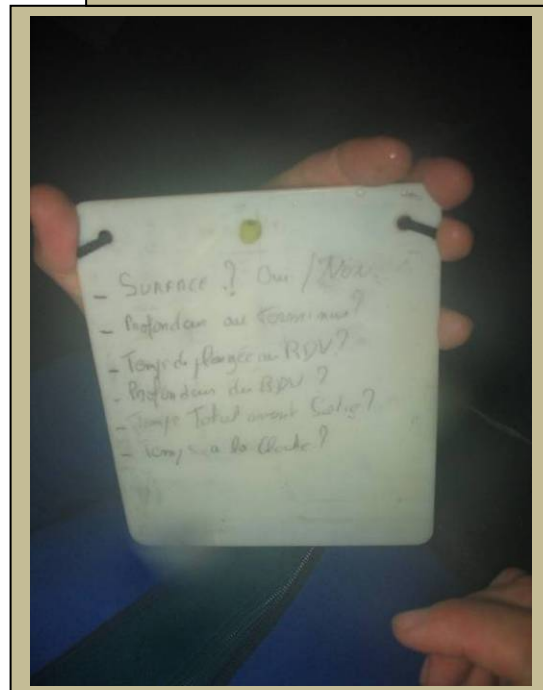 - SURFACE ? Oui / NON
- Profondeur au Terminus ?
- Temps de plongée au RDV ?
- Profondeur du RDV ?
- Temps Total avant Sortie ?
- Temps à la Cloche ?